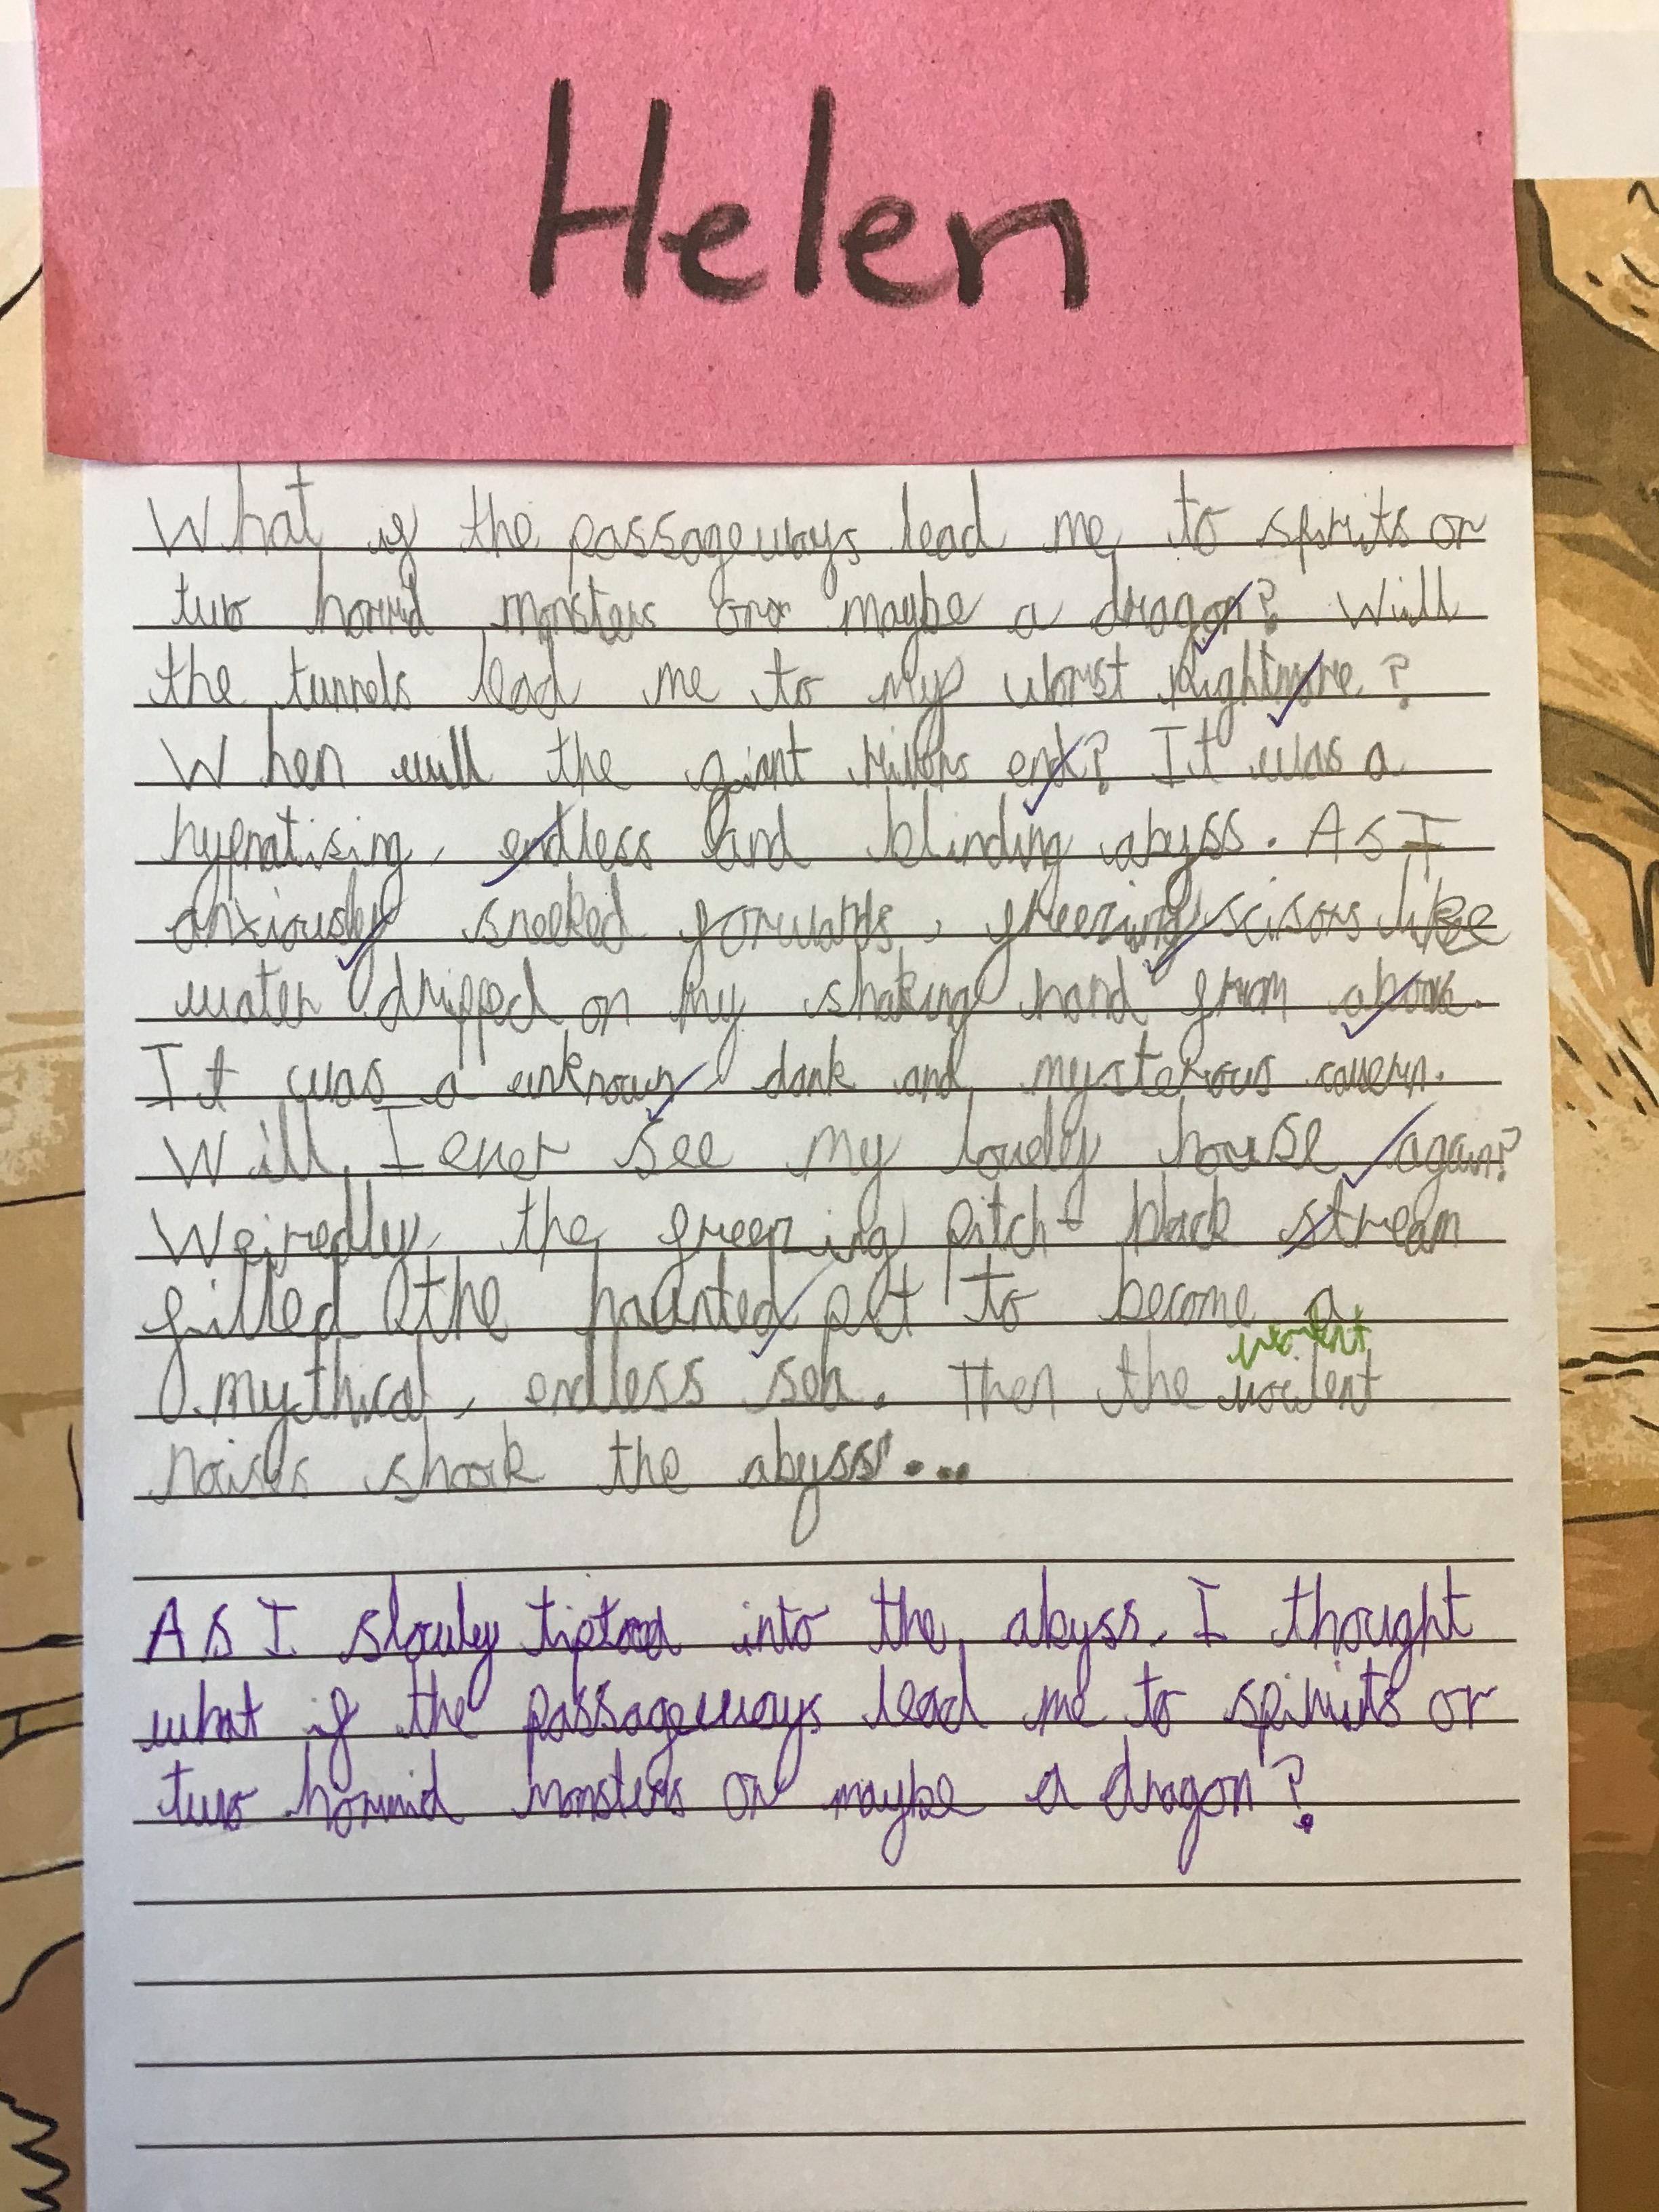 Helen
What if the passageways lead me to spirits or
two horrid monsters or maybe a dragon? Will
the tunnels lead me to my worst nightmare?
When will the giant end? It was a
hypnatising, endless and blinding abyss. As I
anxiously sneeked forwards, freezing scisors like
water dripped on my shaking hand from above.
It was a unknown dank and mysterious cavern.
Will I ever see my lovely house again?
Weiredly, the freezing pitch-black stream
filled the haunted pit to become a
mythical, endless sea. Then the
noises shook the abyss...
As I slowly tiptoed into the abyss. I thought
what if the passageways lead me to spiriits or
two horrid monsters or maybe a dragon?